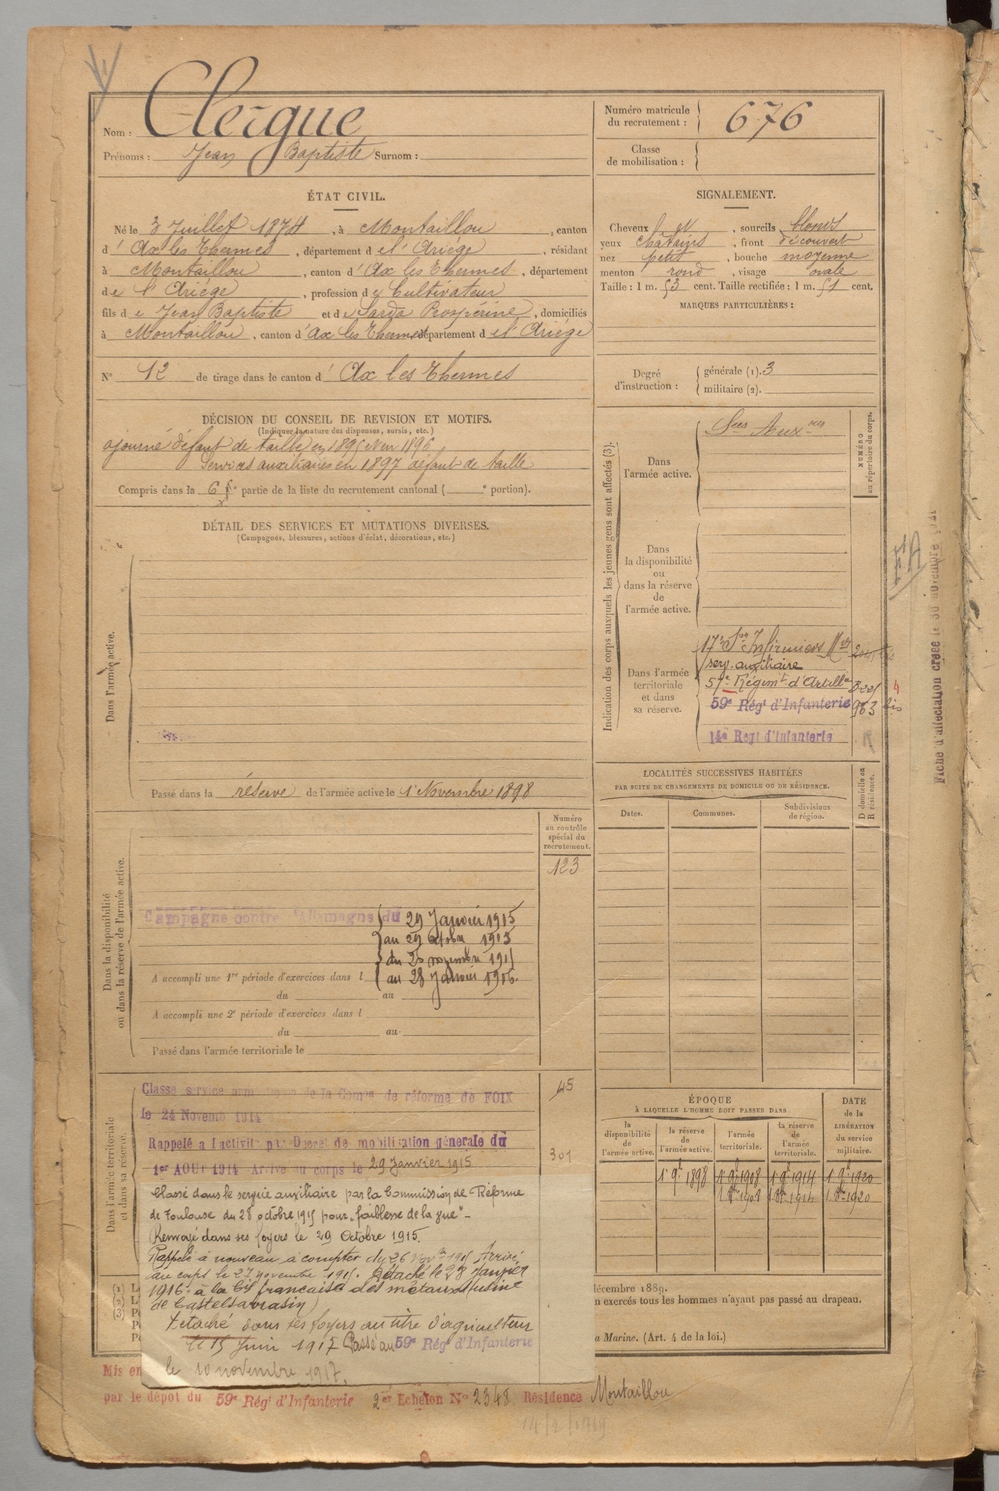 Clergue
Nom :
Prénoms : Jean Baptiste Surnom :
Numéro matricule
du recrutement : 676
Classe
de mobilisation :
ÉTAT CIVIL.
Né le 3 Juillet 1874, à Montaillou, canton
d' Ax les Thermes, département de l'Ariége, résidant
à Montaillou, canton d' Ax les Thermes, département
de l'Ariége, profession de Cultivateur
fils de Jean Baptiste et de Sarda Prosperine, domiciliés
à Montaillou, canton d' Ax les Thermes département de l'Ariége
N° 12 de tirage dans le canton d' Ax les Thermes
SIGNALEMENT.
Cheveux et, sourcils blonds
yeux chatains, front découvert
nez petit, bouche moyenne
menton rond, visage ovale
Taille : 1 m. 53 cent. Taille rectifiée : 1 m. 51 cent.
MARQUES PARTICULIÈRES :
Degré
d'instruction :
générale (1). 3
militaire (2).
DÉCISION DU CONSEIL DE REVISION ET MOTIFS.
(Indiquer la nature des dispenses, sursis, etc.)
ajourné défaut de taille en 1895 et en 1896
Services auxiliaires en 1897 défaut de taille
Compris dans la 6e partie de la liste du recrutement cantonal ( e portion).
DÉTAIL DES SERVICES ET MUTATIONS DIVERSES.
(Campagnes, blessures, actions d'éclat, décorations, etc.)
Dans l'armée active.
Passé dans la réserve de l'armée active le 1 Novembre 1898
Indication des corps auxquels les jeunes gens sont affectés (3).
NUMÉRO
au répertoire du corps.
Dans
l'armée active.
Sces Auxres
Dans
la disponibilité
ou
dans la réserve
de
l'armée active.
Dans l'armée
territoriale
et dans
sa réserve.
17e Son Infirmiers Mres
serv. auxiliaire
57e Régimt d'Artille
59e Régt d'Infanterie 963 bis
14e Regt d'Infanterie
LOCALITÉS SUCCESSIVES HABITÉES
PAR SUITE DE CHANGEMENTS DE DOMICILE OU DE RÉSIDENCE.
Dates.
Communes.
Subdivisions
de région.
D domicile ou
R résidence.
Dans la disponibilité
ou dans la réserve de l'armée active.
Numéro
au contrôle
spécial du
recrutement.
123
Campagne contre l'Allemagne du
29 Janvier 1915
au 29 octobre 1915
du 26 novembre 1915
au 28 Janvier 1916.
A accompli une 1re période d'exercices dans l
du au
A accompli une 2e période d'exercices dans l
du au
Passé dans l'armée territoriale le
Dans l'armée territoriale
et dans sa réserve.
45
301
Classé service auxiliaire de la Comon de réforme de FOIX
le 24 Novembre 1914
Rappelé à l'activité par Décret de mobilisation générale du
1er AOUT 1914 Arrivé au corps le 29 Janvier 1915
Classé dans le service auxiliaire par la Commission de Réforme
de Toulouse du 28 octobre 1915 pour "faiblesse de la vue" -
Renvoyé dans ses foyers le 29 Octobre 1915.
Rappelé à nouveau à compter du 26 Nov. 1915 Arrivé
au corps le 27 novembre 1915. Détaché le 28 Janvier
1916 à la Cie française des métaux (usine
de Castelsarrasin)
Détaché dans ses foyers au titre d'agriculteur
le 15 Juin 1917 Passé au 59e Régt d'Infanterie
le 10 novembre 1917.
ÉPOQUE
À LAQUELLE L'HOMME DOIT PASSER DANS
DATE
de la
LIBÉRATION
du service
militaire.
la
disponibilité
de l'armée
active.
la réserve
de
l'armée active.
l'armée
territoriale.
la réserve
de
l'armée
territoriale.
1 9bre 1898 1 9bre 1908 1 9bre 1914 1 9bre 1920
1 8bre 1908 1 8bre 1914 1 8bre 1920
décembre 1889.
n exercés tous les hommes n'ayant pas passé au drapeau.
a Marine. (Art. 4 de la loi.)
Mis en
par le dépôt du 59e Régt d'Infanterie 2e Echelon N° 2348 Résidence Montaillou
14/2/1919
EA
Fiche d'affectation créée le 30 novembre